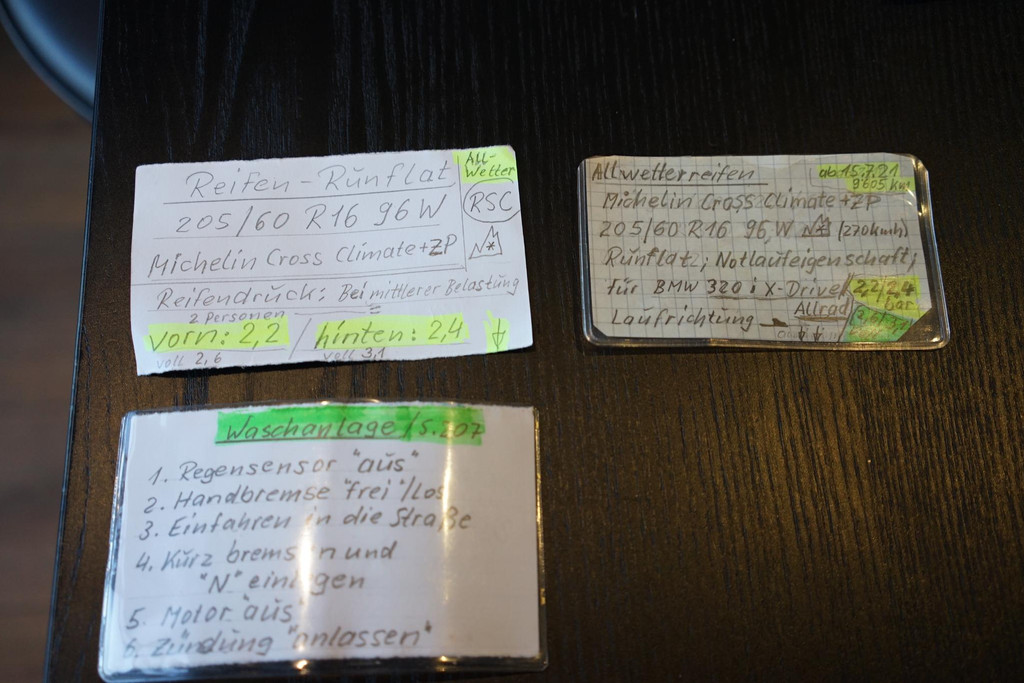 Reifen-Runflat
All-
Wetter
RSC
205/60 R16 96 W
Michelin Cross Climate+ZP
Reifendruck: Bei mittlerer Belastung
2 Personen
vorn: 2,2 / hinten: 2,4
voll 2,6 voll 3,1
Allwetterreifen
ab 15.7.21
9605 km
Michelin Cross Climate+ZP
205/60 R16 96 W (270kmh)
Runflat; Notlaufeigenschaft;
für BMW 320 i X-Drive/ 2,2/2,4
Allrad bar
Laufrichtung
Waschanlage/S.207
1. Regensensor "aus"
2. Handbremse "frei"/Los
3. Einfahren in die Straße
4. Kurz bremsen und
"N" einlegen
5. Motor "aus"
6. Zündung "anlassen"